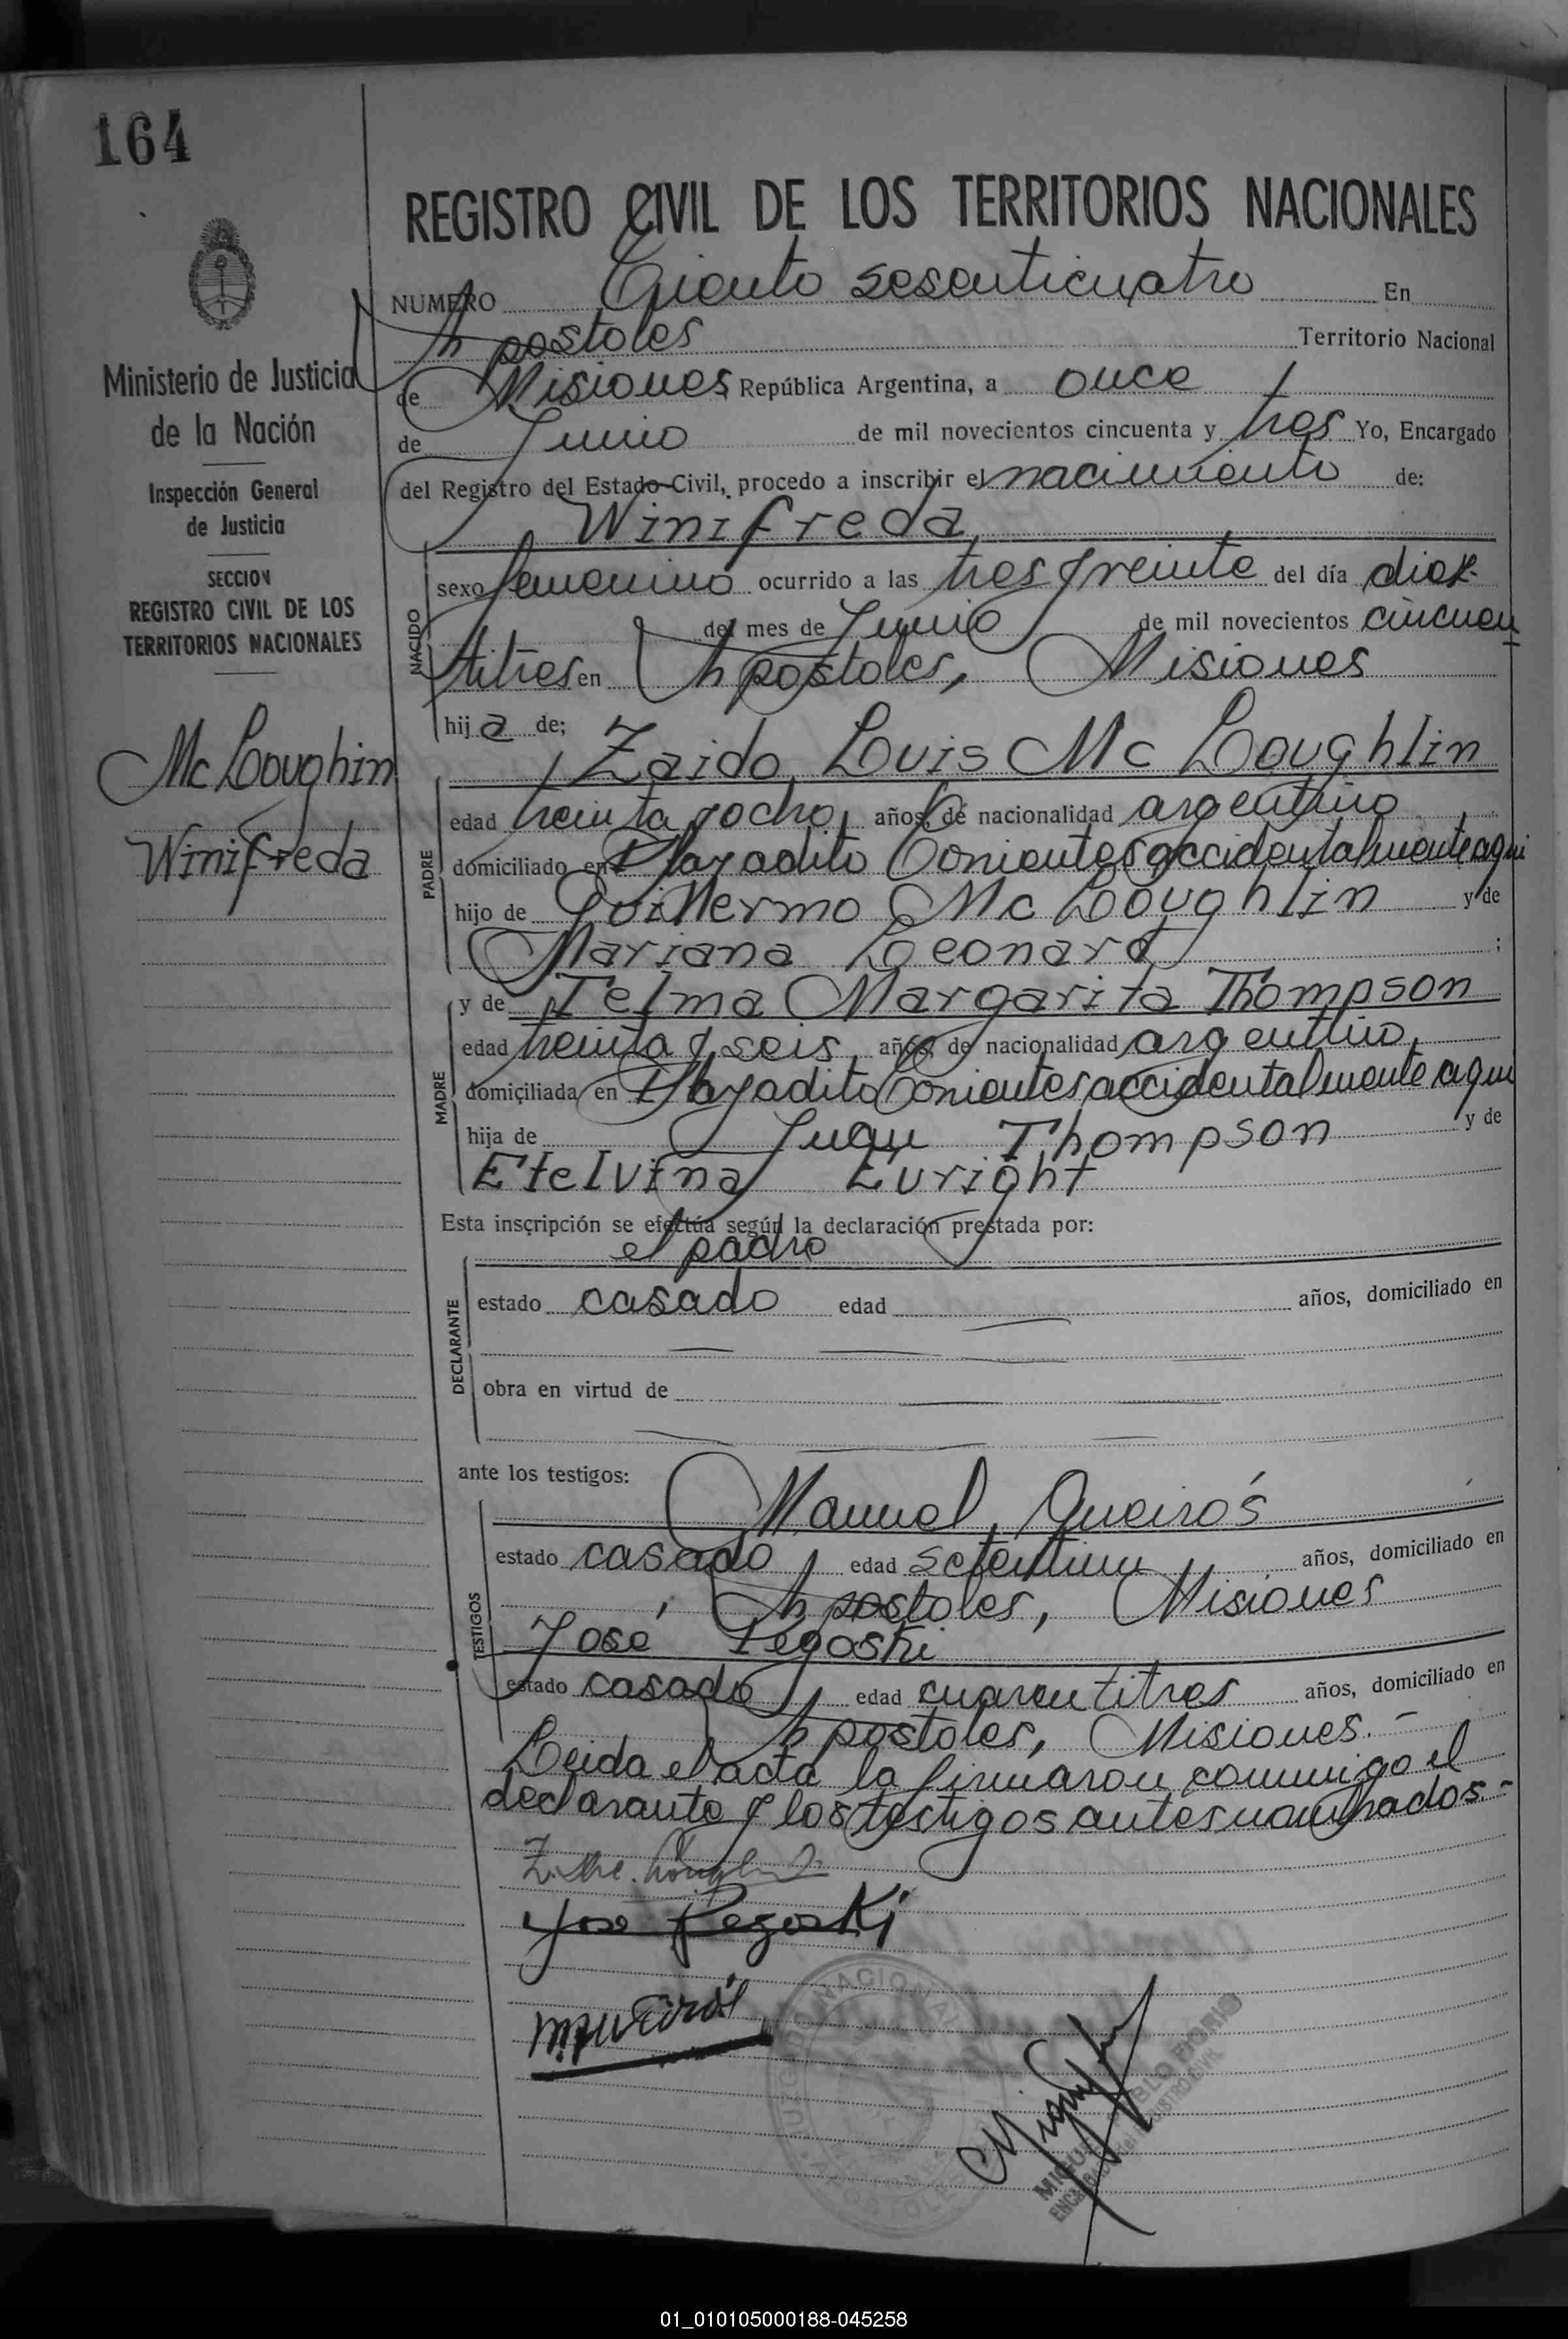 164
REGISTRO CIVIL DE LOS TERRITORIOS NACIONALES
NUMERO Ciento sesenticuatro En
Apostoles Territorio Nacional
de Misiones República Argentina, a once
de Junio de mil novecientos cincuenta y tres Yo, Encargado
del Registro del Estado Civil, procedo a inscribir el nacimiento de:
Winifreda
Ministerio de Justicia
de la Nación
Inspección General
de Justicia
SECCION
REGISTRO CIVIL DE LOS
TERRITORIOS NACIONALES
Mc Loughin
Winifreda
NACIDO
sexo femenino ocurrido a las tres y treinta del día diez
del mes de Junio de mil novecientos cincuen
titres en Apostoles, Misiones
hija de;
Zaido Louis Mc Loughlin
PADRE
edad treinta y ocho años, de nacionalidad argentino
domiciliado en Playadito Corrientes accidentalmente aqui
hijo de Guillermo Mc Loughlin y de
Mariana Leonard ;
y de Telma Margarita Thompson
MADRE
edad treinta y seis años, de nacionalidad argentino
domiciliada en Playadito Corrientes accidentalmente aqui
hija de Juan Thompson y de
Etelvina Euright
Esta inscripción se efectúa según la declaración prestada por:
el padre
DECLARANTE
estado casado edad años, domiciliado en
obra en virtud de
ante los testigos:
Manuel Queirós
TESTIGOS
estado casado edad setentiun años, domiciliado en
Apostoles, Misiones
José Pegoski
estado casado edad cuarentitres años, domiciliado en
Apostoles, Misiones.-
Leida el acta la firmaron conmigo el
declarante y los testigos antes nombrados.-
Z. Mc. Loughlin
Jose Pegoski
MQueirós
01_010105000188-045258